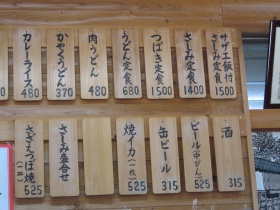 サザエ飯付
さしみ定食
1500
さしみ定食
1400
つばき定食
1500
うどん定食
680
肉うどん
480
かやくうどん
370
カレーライス
480
酒
315
ビール(中びん)
525
缶ビール
315
焼イカ(一枚)
525
さしみ盛合せ
さざえつぼ焼(一ヶ)
525